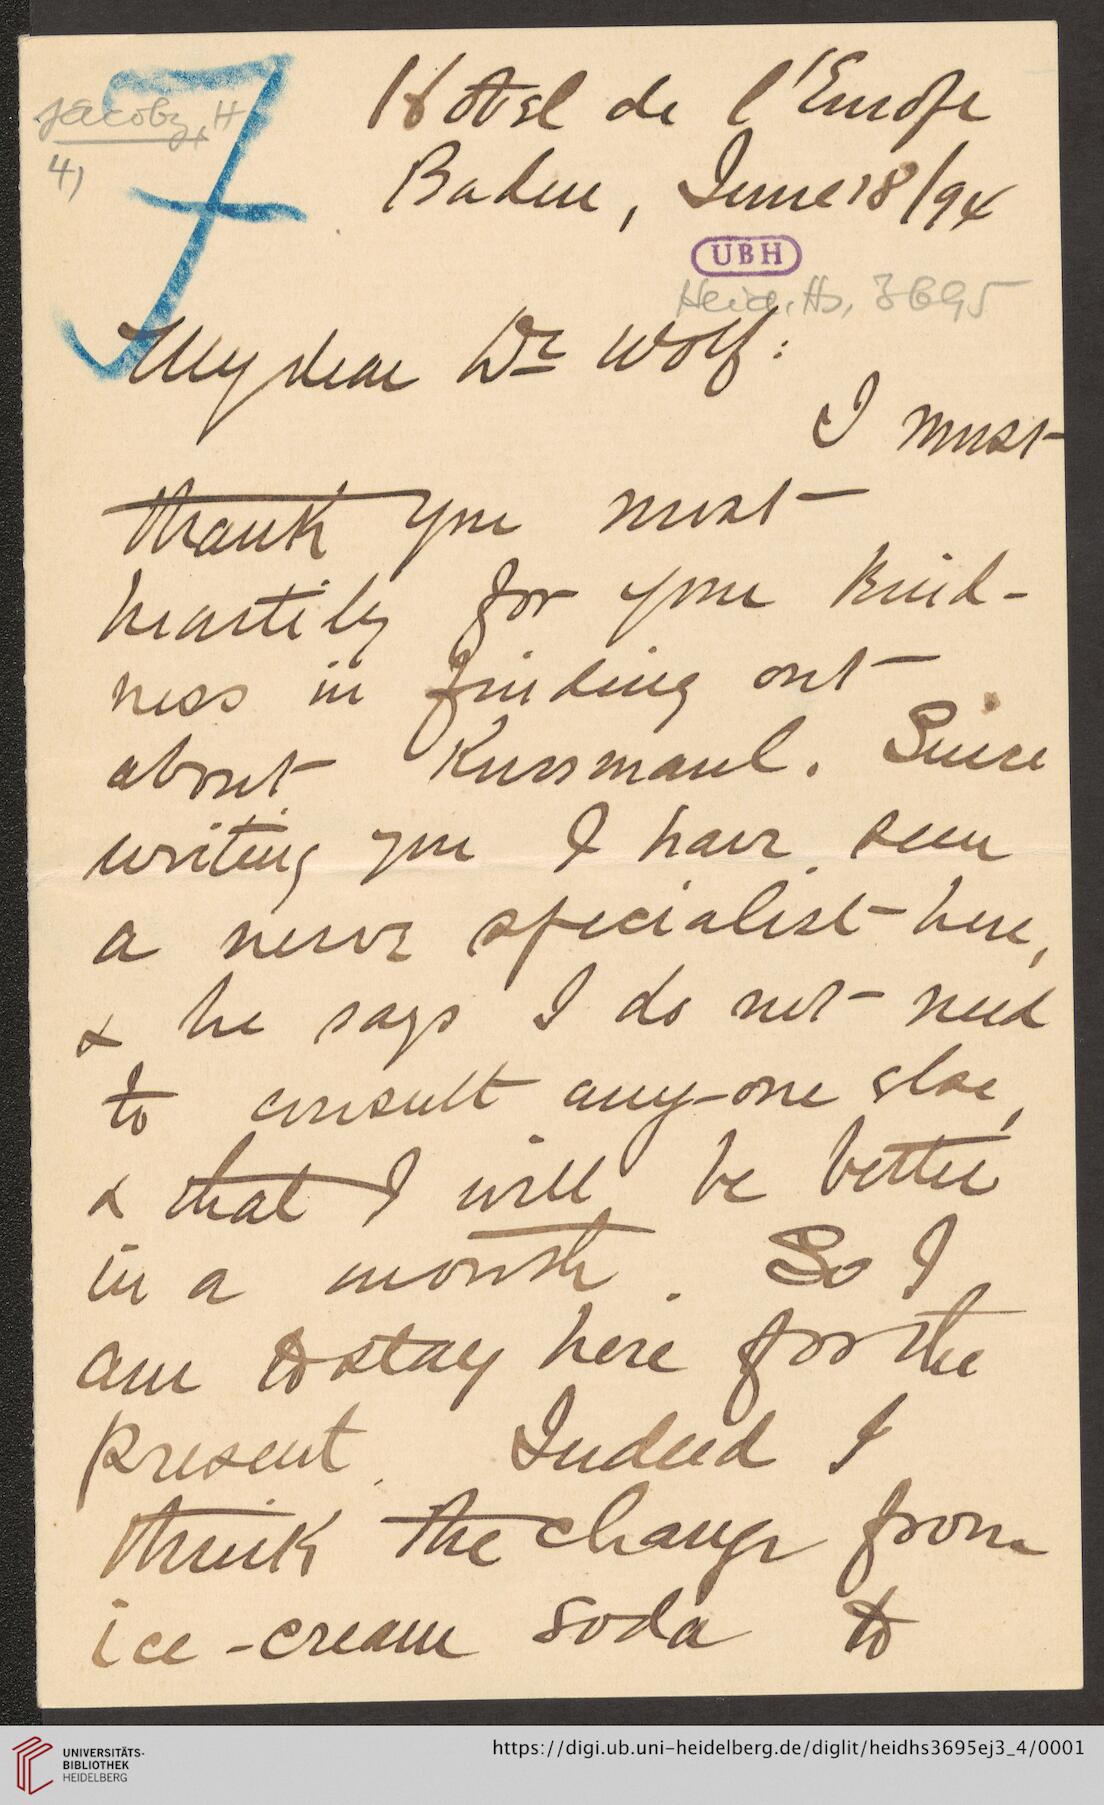 Jacoby, H
4)
7
Hotel de l'Europe
Baden, June 18/94
UBH
Heid. Hs. 3695
My dear Dr Wolf:
I must
thank you most
heartily for your kind-
ness in finding out
about Kussmaul. Since
writing you I have seen
a nerve specialist here,
& he says I do not need
to consult any-one else,
& that I will be better
in a month. So I
am to stay here for the
present. Indeed I
think the change from
ice-cream soda to
UNIVERSITÄTS-
BIBLIOTHEK
HEIDELBERG
https://digi.ub.uni-heidelberg.de/diglit/heidhs3695ej3_4/0001